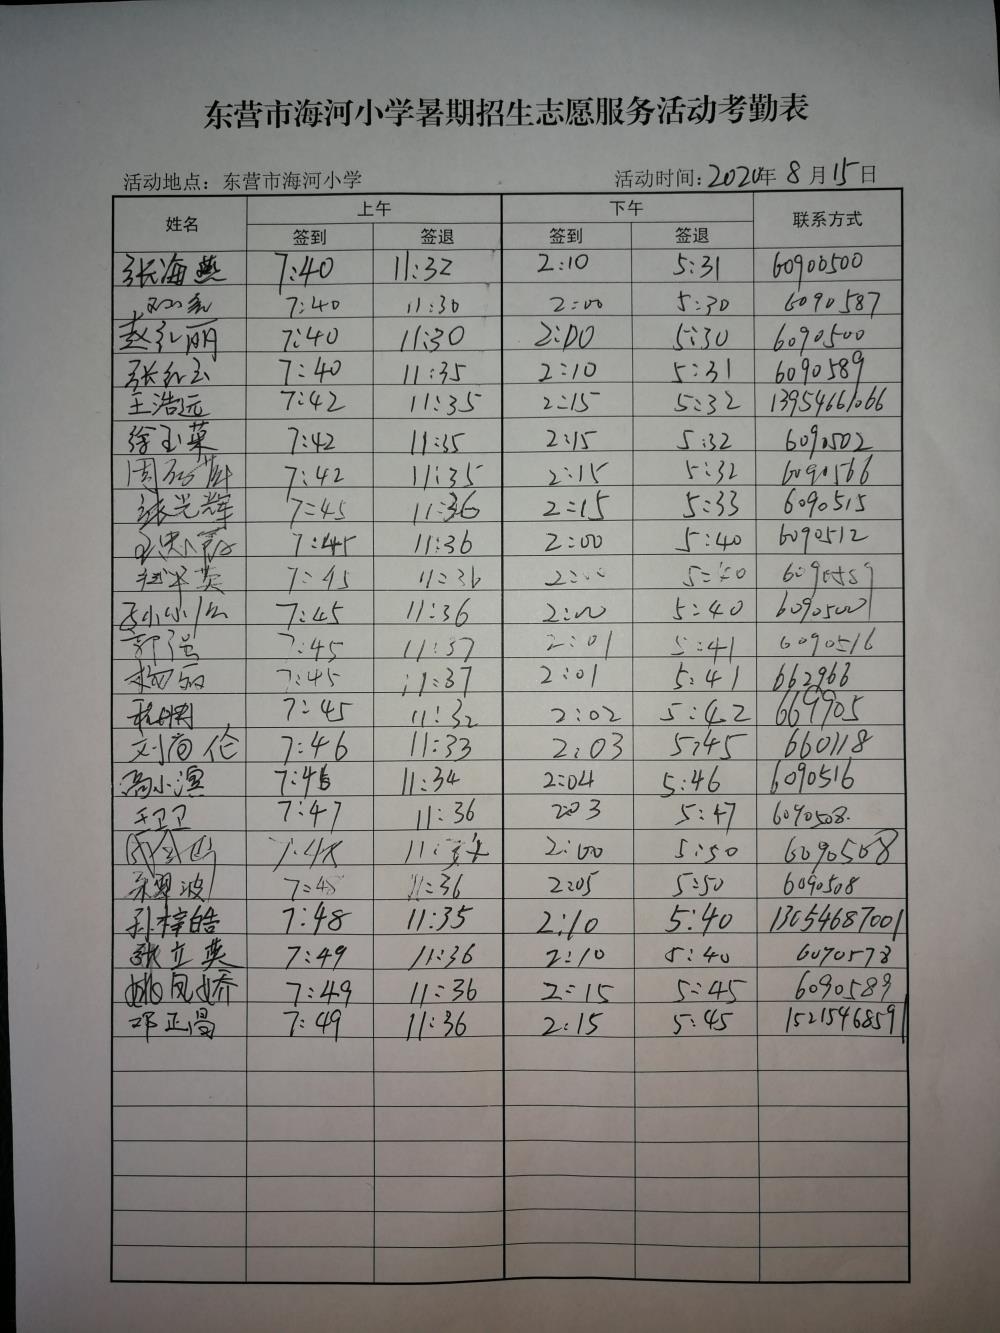 东营市海河小学暑期招生志愿服务活动考勤表
活动地点：东营市海河小学 活动时间：2020年 8 月 15 日
姓名 上午 下午 联系方式
签到 签退 签到 签退
张海燕 7:40 11:32 2:10 5:31 60900500
7:40 11:30 2:00 5:30 6090587
赵红丽 7:40 11:30 2:00 5:30 6090500
张红玉 7:40 11:35 2:10 5:31 6090589
王浩远 7:42 11:35 2:15 5:32 13954661066
徐玉菓 7:42 11:35 2:15 5:32 6090502
周 7:42 11:35 2:15 5:32 6090566
张光辉 7:45 11:36 2:15 5:33 6090515
7:45 11:36 2:00 5:40 6090512
英 7:45 11:36 2:00 5:40
7:45 11:36 2:00 5:40 6090500
郭强 7:45 11:37 2:01 5:41 6090516
杨丽 7:45 11:37 2:01 5:41 662966
7:45 11:32 2:02 5:42 669905
刘尚伦 7:46 11:33 2:03 5:45 660118
高小溟 7:46 11:34 2:04 5:46 6090516
王卫卫 7:47 11:36 2:03 5:47 6090508.
7:48 2:00 5:50 6090508
波 7:48 11:36 2:05 5:50 6090508
孙梓皓 7:48 11:35 2:10 5:40 13054687001
张立英 7:49 11:36 2:10 5:40 6090578
姚凤娇 7:49 11:36 2:15 5:45 6090589
邓正昌 7:49 11:36 2:15 5:45 15215468591